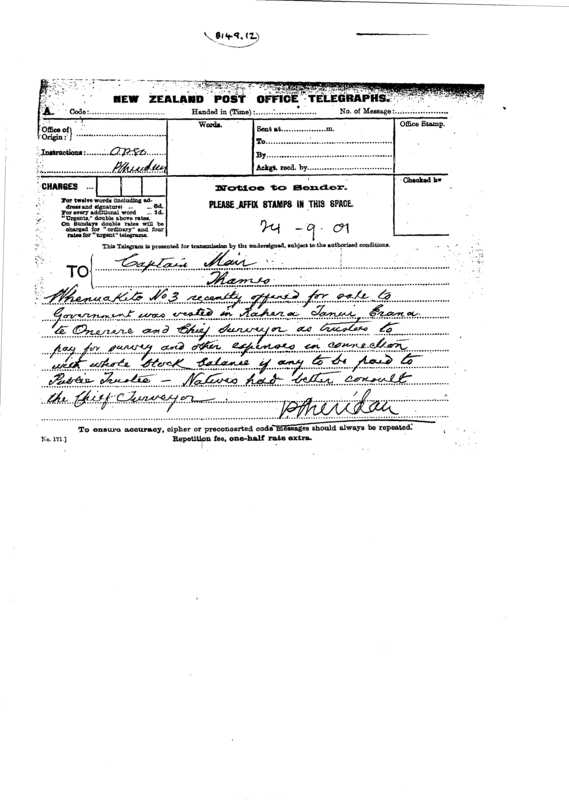 8149.12
NEW ZEALAND POST OFFICE TELEGRAPHS.
A. Code: Handed in (Time): No. of Message:
Office of Origin:
Words.
Sent at m.
Office Stamp.
To
Instructions: OPSO
By
PSheridan
Ackgt. recd. by
CHARGES ...
Notice to Sender.
Checked by
For twelve words (including ad-
dress and signature) ... 6d.
For every additional word ... 1d.
"Urgents," double above rates.
On Sundays double rates will be
charged for "ordinary" and four
rates for "urgent" telegrams.
PLEASE AFFIX STAMPS IN THIS SPACE.
24-9-01
This Telegram is presented for transmission by the undersigned, subject to the authorised conditions.
TO Captain Mair
Thames
Whenuakite No 3 recently offered for sale to
Government was vested in Rahera Tanui, Erana
te Onerere and Chief Surveyor as trustees to
pay for survey and other expenses in connection
with whole block balance if any to be paid to
Public Trustee – Natives had better consult
the Chief Surveyor
PSheridan
To ensure accuracy, cipher or preconcerted code messages should always be repeated.
No. 171.] Repetition fee, one-half rate extra.